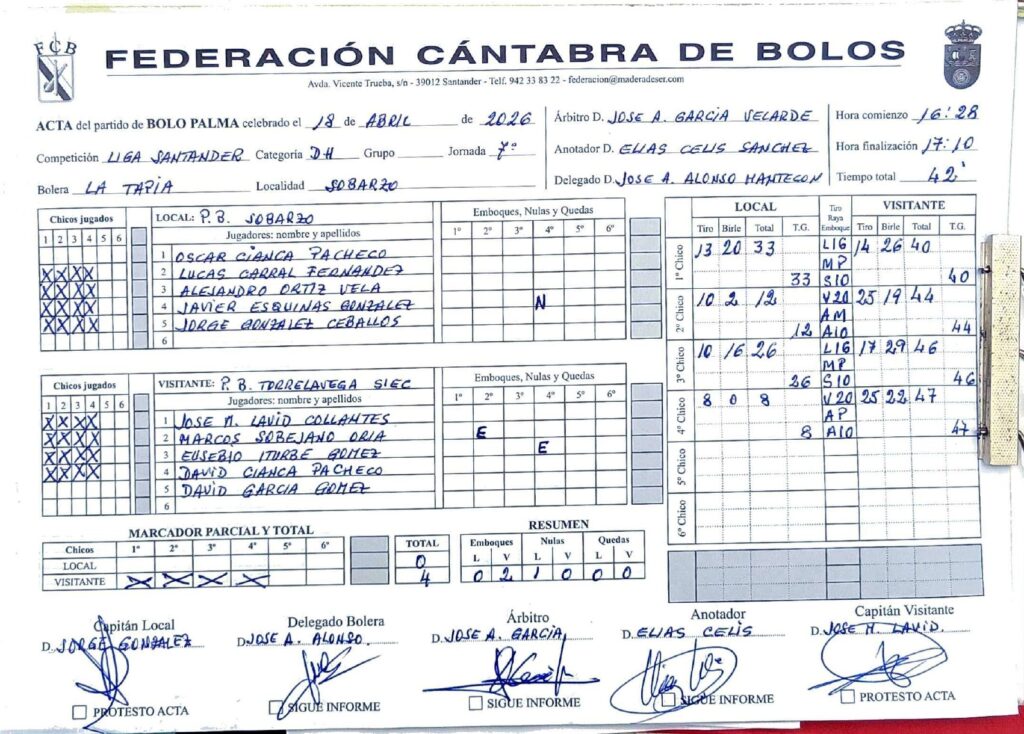 FCB
FEDERACIÓN CÁNTABRA DE BOLOS
Avda. Vicente Trueba, s/n - 39012 Santander - Telf. 942 33 83 22 - federacion@maderadeser.com
ACTA del partido de BOLO PALMA celebrado el 18 de ABRIL de 2026
Competición LIGA SANTANDER Categoría DH Grupo Jornada 7ª
Bolera LA TAPIA Localidad SOBARZO
Árbitro D. JOSE A. GARCIA VELARDE
Anotador D. ELIAS CELIS SANCHEZ
Delegado D. JOSE A. ALONSO MANTECON
Hora comienzo 16:28
Hora finalización 17:10
Tiempo total 42'
Chicos jugados
1 2 3 4 5 6
X X X X
X X X X
X X X X
X X X X
LOCAL: P.B. SOBARZO
Jugadores: nombre y apellidos
1 OSCAR CIANCA PACHECO
2 LUCAS CARRAL FERNANDEZ
3 ALEJANDRO ORTIZ VELA
4 JAVIER ESQUINAS GONZALEZ
5 JORGE GONZALEZ CEBALLOS
6
Emboques, Nulas y Quedas
1º 2º 3º 4º 5º 6º
N
Chicos jugados
1 2 3 4 5 6
X X X X
X X X X
X X X X
X X X X
VISITANTE: P.B. TORRELAVEGA SIEC
Jugadores: nombre y apellidos
1 JOSE M. LAVID COLLANTES
2 MARCOS SOBEJANO ORIA
3 EUSEBIO ITURBE GOMEZ
4 DAVID CIANCA PACHECO
5 DAVID GARCIA GOMEZ
6
Emboques, Nulas y Quedas
1º 2º 3º 4º 5º 6º
E
E
LOCAL Tiro Raya Emboque VISITANTE
Tiro Birle Total T.G. Tiro Birle Total T.G.
1º Chico 13 20 33 L16 14 26 40
MP
33 S10 40
2º Chico 10 2 12 V20 25 19 44
AM
12 A10 44
3º Chico 10 16 26 L16 17 29 46
MP
26 S10 46
4º Chico 8 0 8 V20 25 22 47
AP
8 A10 47
5º Chico
6º Chico
MARCADOR PARCIAL Y TOTAL
Chicos 1º 2º 3º 4º 5º 6º TOTAL
LOCAL 0
VISITANTE X X X X 4
RESUMEN
Emboques Nulas Quedas
L V L V L V
0 2 1 0 0 0
Capitán Local
D. JORGE GONZALEZ
PROTESTO ACTA
Delegado Bolera
D. JOSE A. ALONSO.
SIGUE INFORME
Árbitro
D. JOSE A. GARCIA,
SIGUE INFORME
Anotador
D. ELIAS CELIS
SIGUE INFORME
Capitán Visitante
D. JOSE M. LAVID.
PROTESTO ACTA